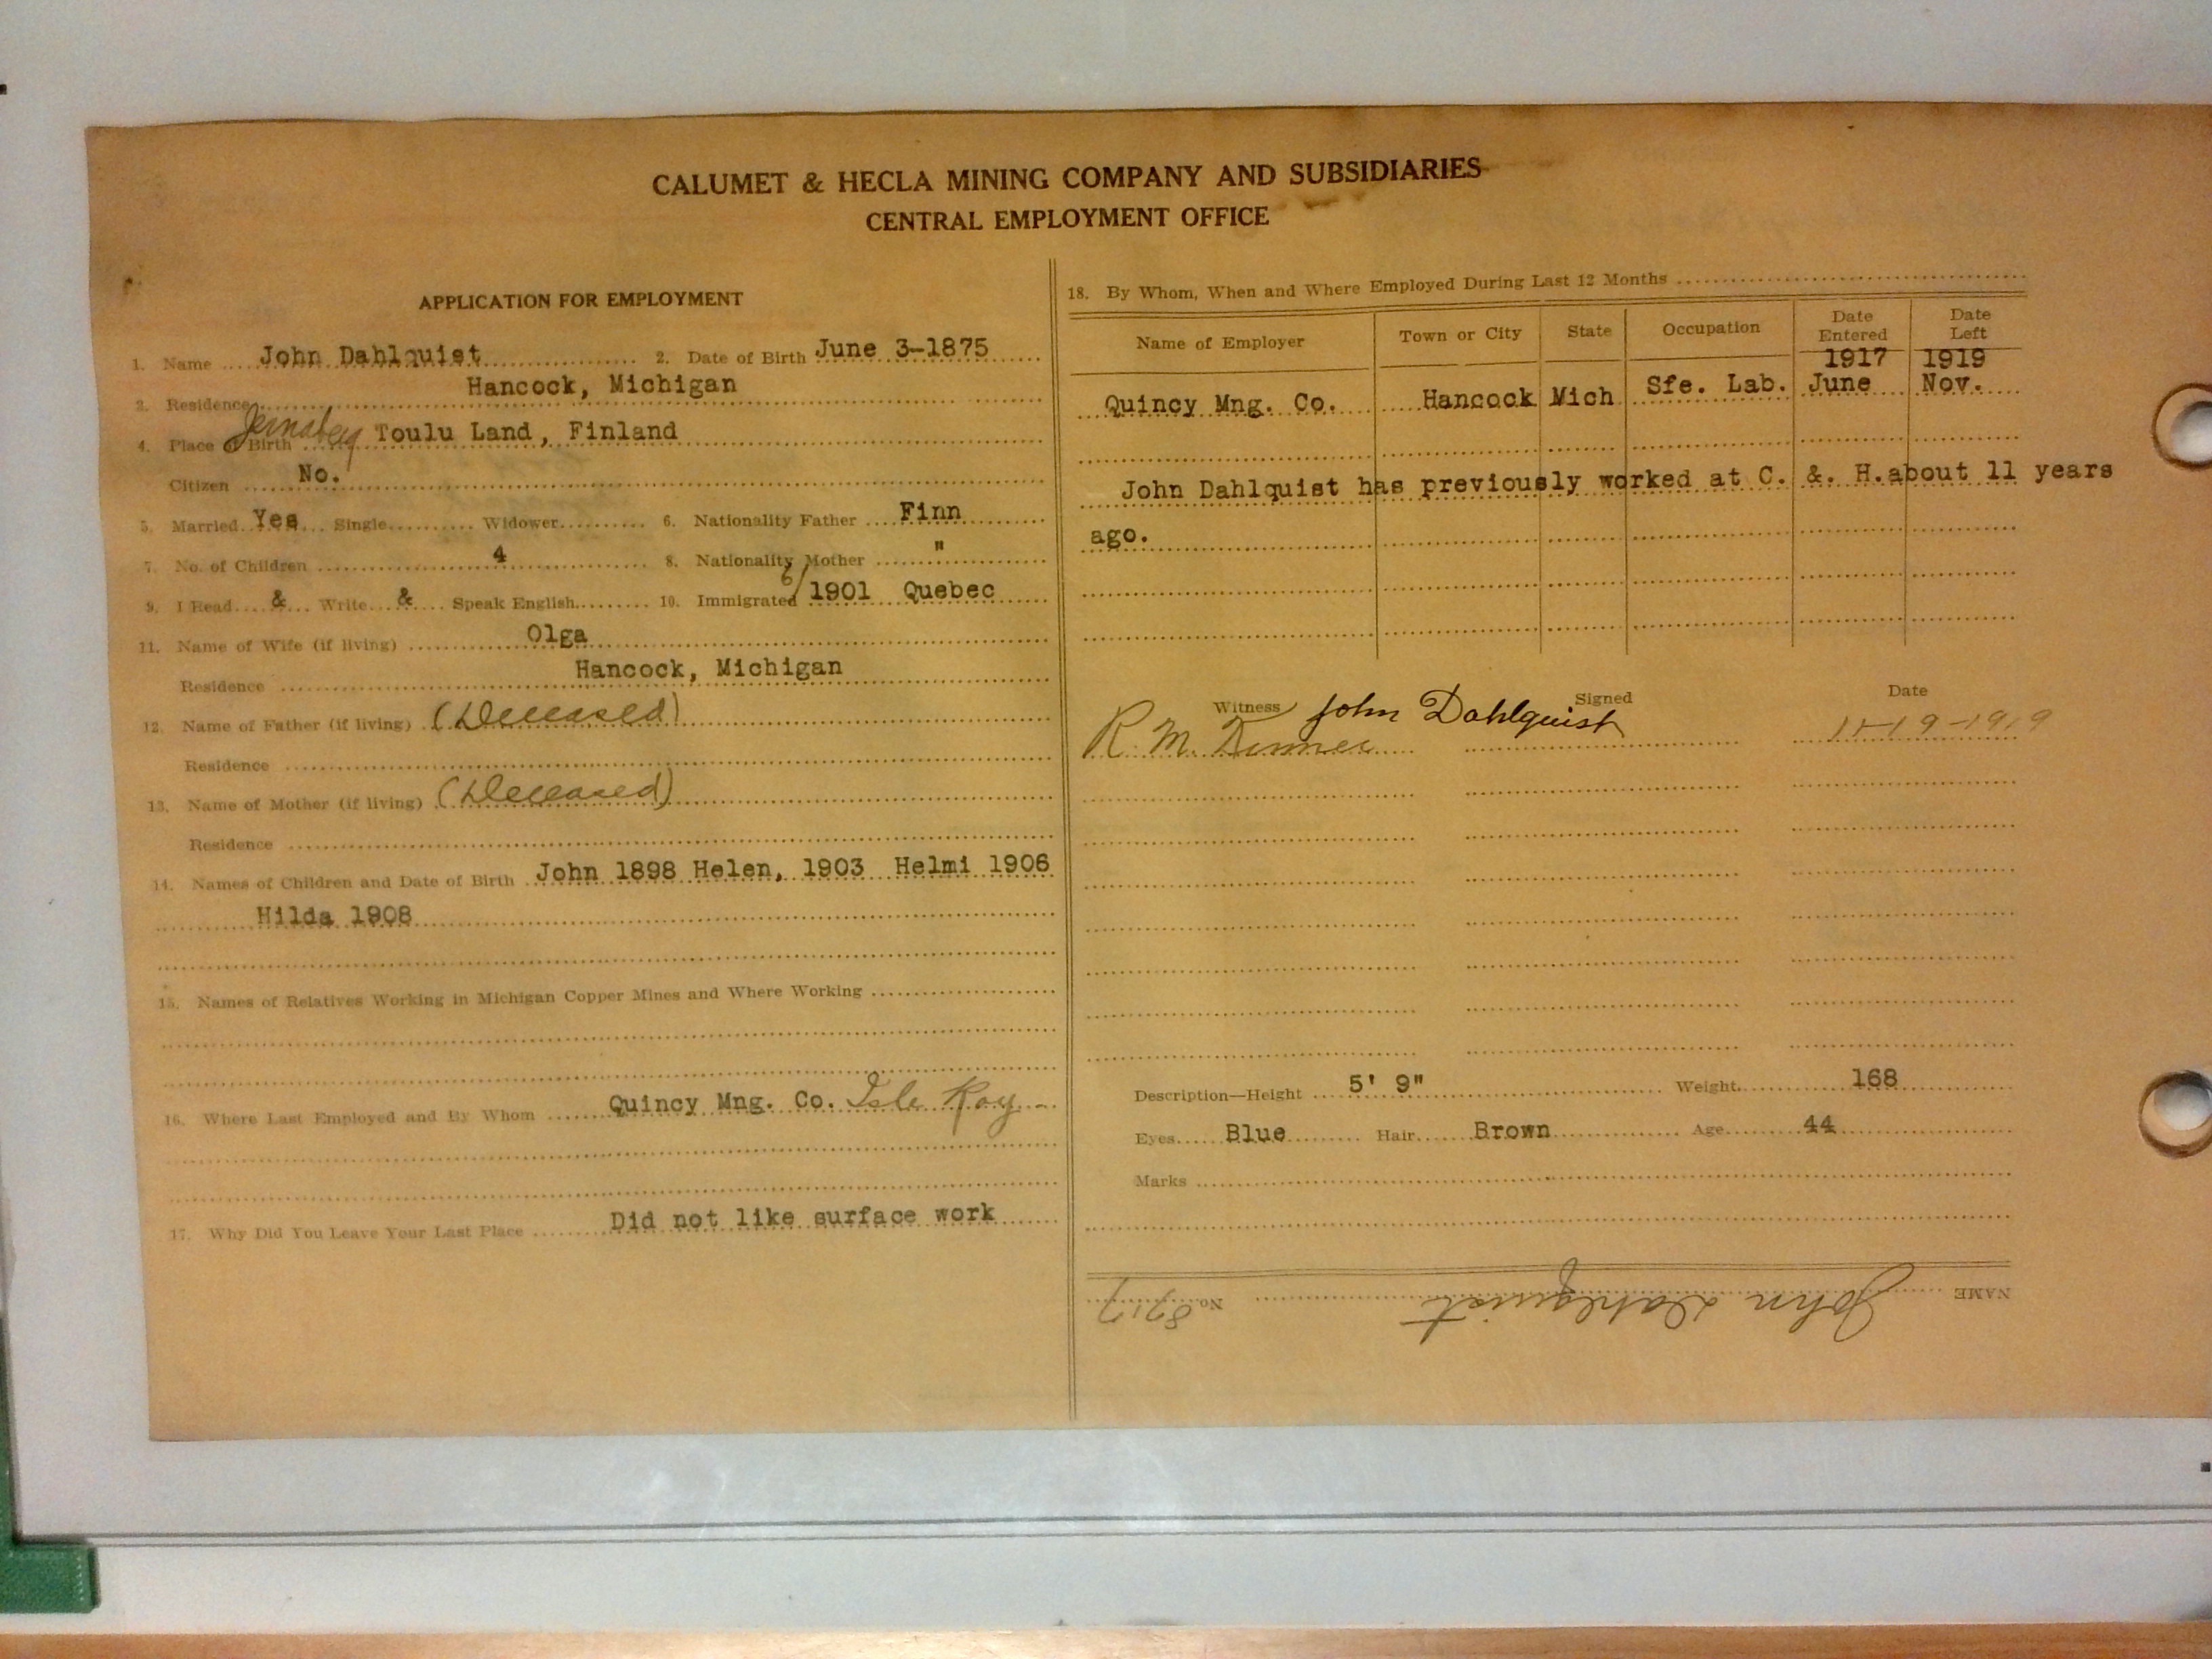 CALUMET & HECLA MINING COMPANY AND SUBSIDIARIES
CENTRAL EMPLOYMENT OFFICE
APPLICATION FOR EMPLOYMENT
1. Name John Dahlquist 2. Date of Birth June 3-1875
3. Residence Hancock, Michigan
4. Place of Birth Toulu Land, Finland
Citizen No.
5. Married Yes Single Widower 6. Nationality Father Finn
7. No. of Children 4 8. Nationality Mother "
9. I Read & Write & Speak English 10. Immigrated 6/1901 Quebec
11. Name of Wife (if living) Olga
Residence Hancock, Michigan
12. Name of Father (if living) (Deceased)
Residence
13. Name of Mother (if living) (Deceased)
Residence
14. Names of Children and Date of Birth John 1898 Helen, 1903 Helmi 1906
Hilda 1908
15. Names of Relatives Working in Michigan Copper Mines and Where Working
16. Where Last Employed and By Whom Quincy Mng. Co. Isle Roy
17. Why Did You Leave Your Last Place Did not like surface work
18. By Whom, When and Where Employed During Last 12 Months
Name of Employer Town or City State Occupation Date Entered Date Left
1917 1919
Quincy Mng. Co. Hancock Mich Sfe. Lab. June Nov.
John Dahlquist has previously worked at C. &. H. about 11 years
ago.
Witness Signed Date
R. M. John Dahlquist 11-19-1919
Description—Height 5' 9" Weight 168
Eyes Blue Hair Brown Age 44
Marks
NAME John Dahlquist No. 8717